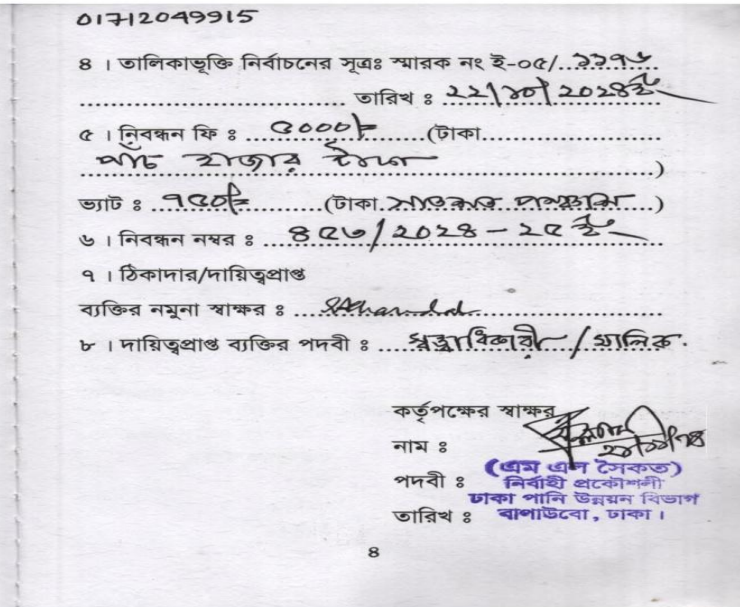 01712049915
৪ । তালিকাভূক্তি নির্বাচনের সূত্রঃ স্মারক নং ই-০৫/...১১৭৬
.................................. তারিখ ঃ ২২/১০/২০২৪ইং
৫ । নিবন্ধন ফি ঃ ....৫০০০/=........(টাকা..........................
পাঁচ হাজার টাকা ..............................)
ভ্যাট ঃ ..৭৫০/=..........(টাকা. সাতশত পঞ্চাশ...)
৬ । নিবন্ধন নম্বর ঃ ...৪৫৬/২০২৪-২৫ ইং
৭ । ঠিকাদার/দায়িত্বপ্রাপ্ত
ব্যক্তির নমুনা স্বাক্ষর ঃ
৮ । দায়িত্বপ্রাপ্ত ব্যক্তির পদবী ঃ ....স্বত্ত্বাধিকারী / মালিক.
কর্তৃপক্ষের স্বাক্ষর
নাম ঃ
(এম এল সৈকত)
পদবী ঃ নির্বাহী প্রকৌশলী
ঢাকা পানি উন্নয়ন বিভাগ
তারিখ ঃ বাপাউবো, ঢাকা ।
৪